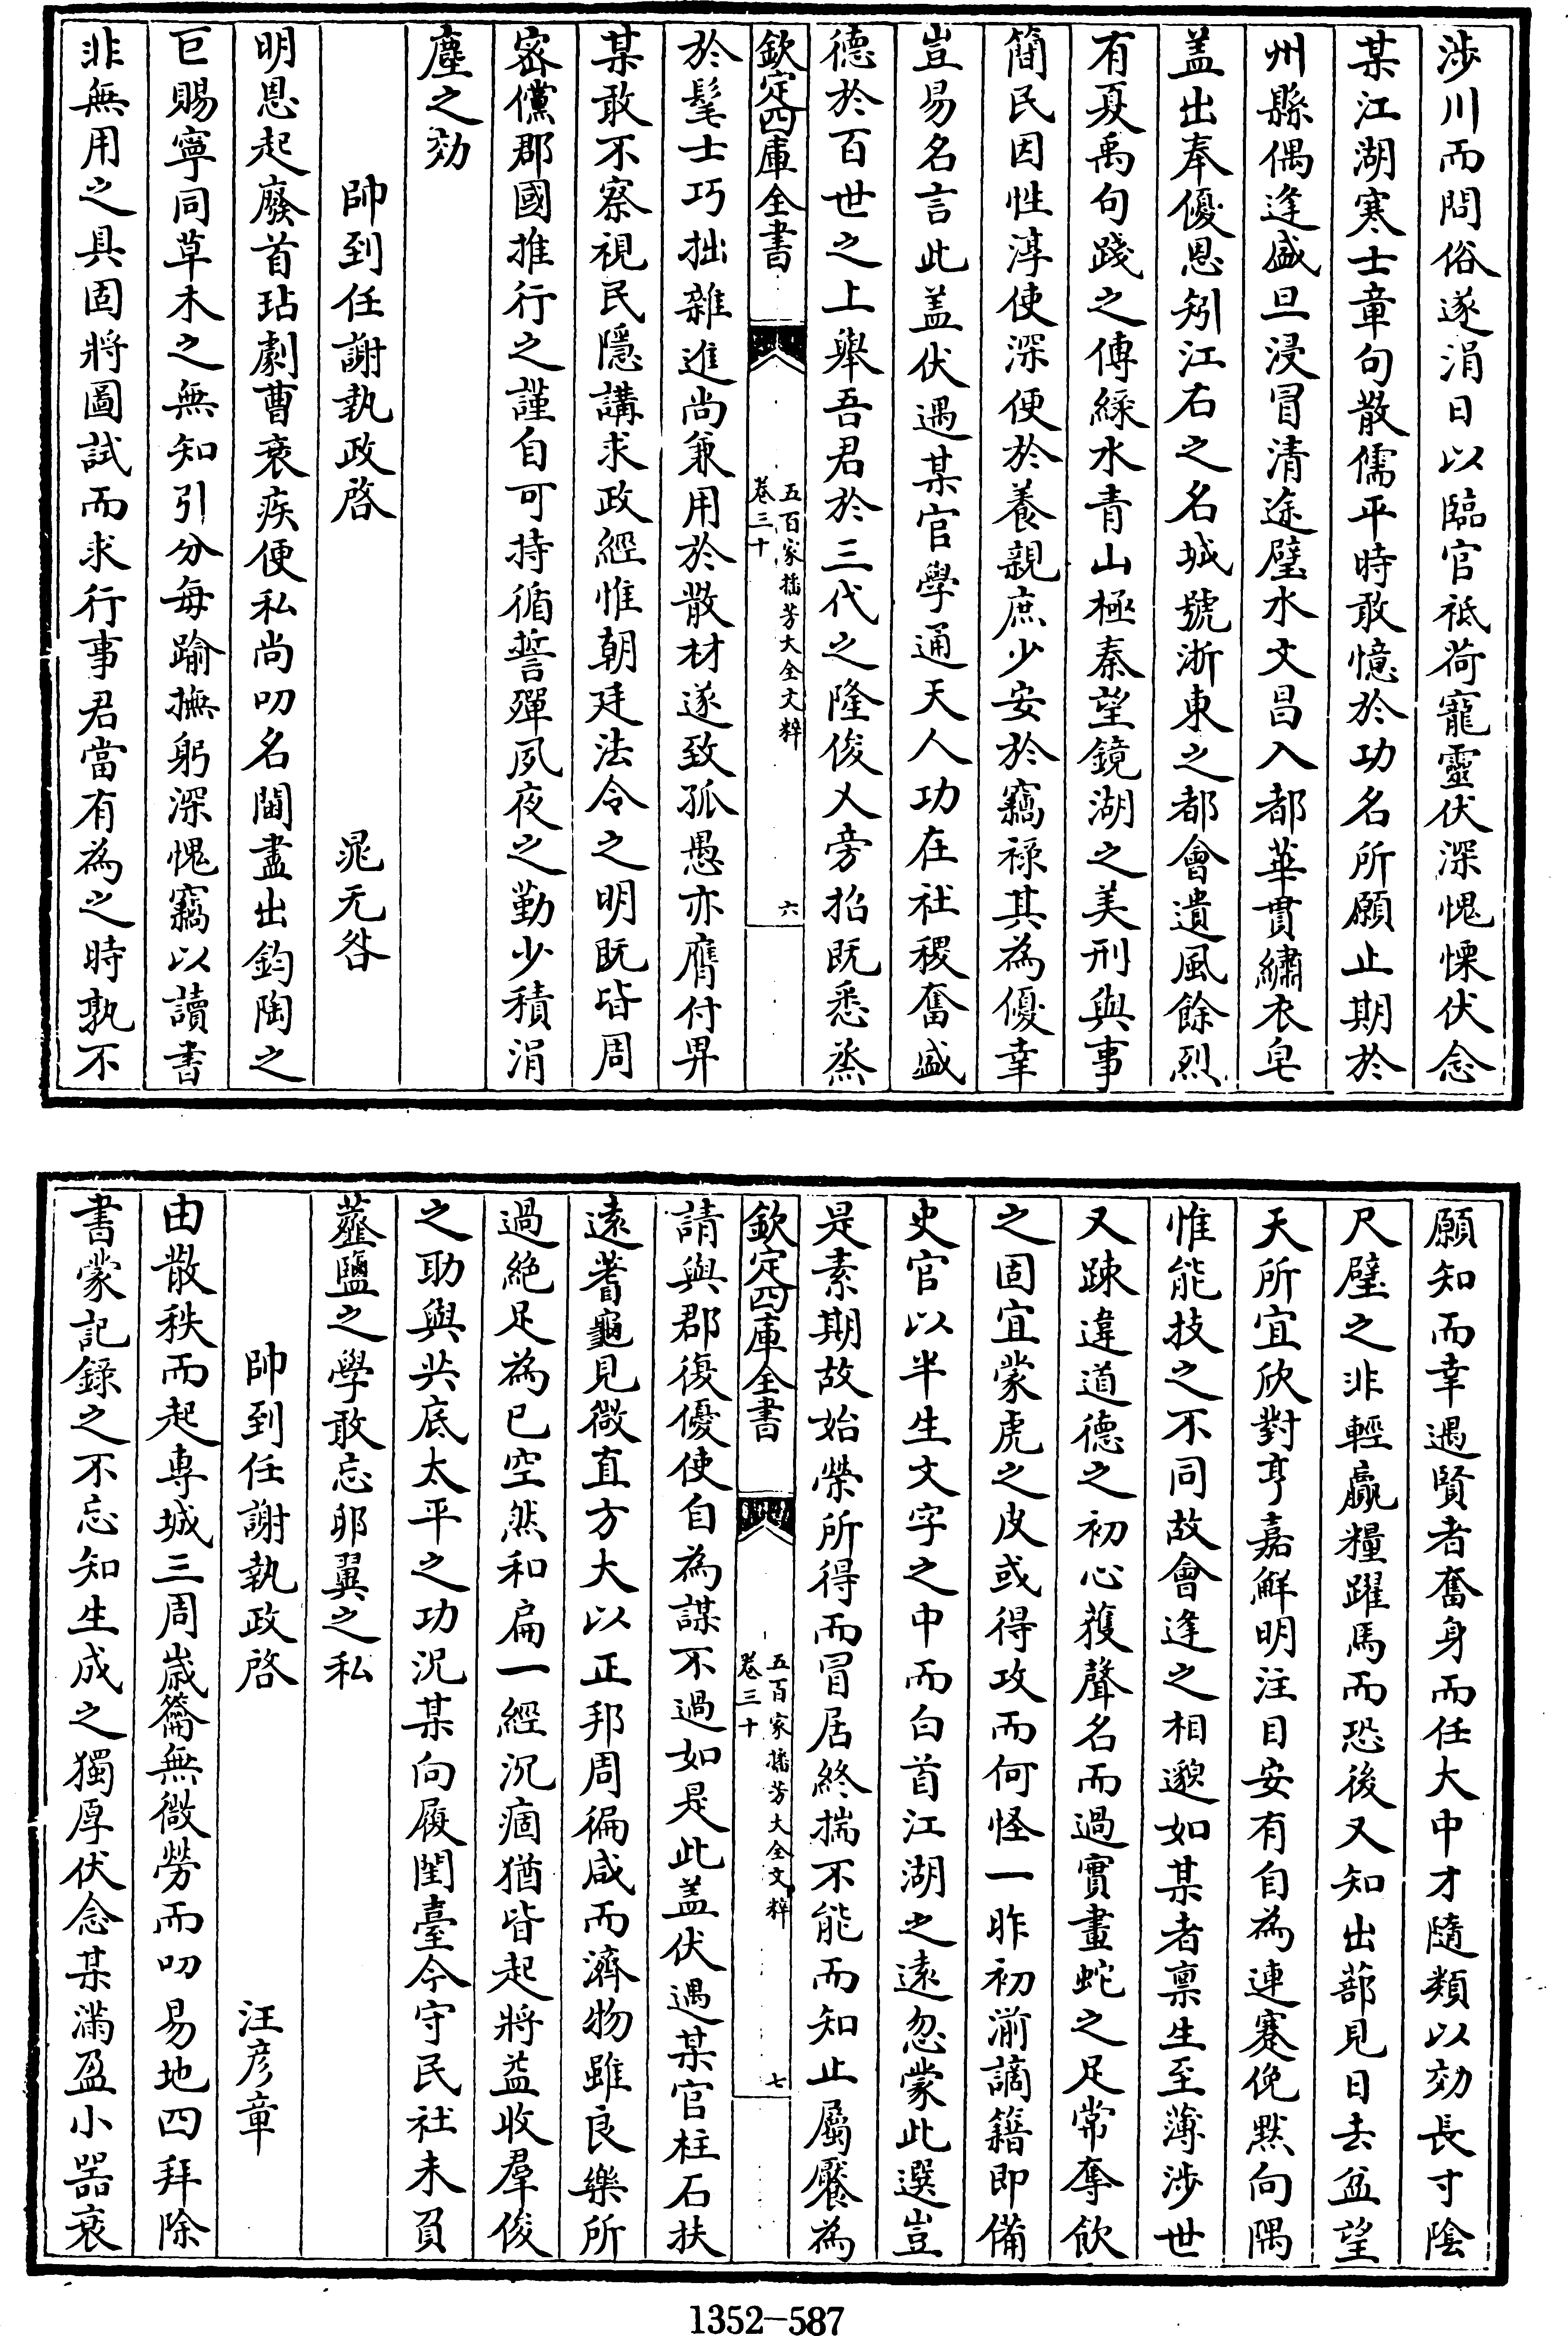 渉川而問俗遂涓日以臨官祗荷寵靈伏深愧慄伏念
某江湖寒士章句散儒平時敢憶於功名所願止期於
州縣偶逢盛旦浸冒清途璧水文昌入都華貫繡衣皂
盖出奉優恩矧江右之名城號浙東之都會遺風餘烈
有夏禹句踐之傳緑水青山極秦望鏡湖之美刑與事
簡民因性淳使深便於養親庶少安於竊禄其為優幸
豈易名言此盖伏遇某官學通天人功在社稷奮盛
德於百世之上舉吾君於三代之隆俊乂旁招既悉烝
欽定四庫全書
五百家播芳大全文粹
卷三十
六
於髦士巧拙雜進尚兼用於散材遂致孤愚亦膺付畀
某敢不察視民隱講求政經惟朝廷法令之明既皆周
宻儻郡國推行之謹自可持循誓殫夙夜之勤少積涓
塵之効
帥到任謝執政啓 晁无咎
明恩起廢首玷劇曹衰疾便私尚叨名閫盡出鈞陶之
巨賜寧同草木之無知引分每踰撫躬深愧竊以讀書
非無用之具固將圖試而求行事君當有為之時孰不
願知而幸遇賢者奮身而任大中才隨類以効長寸陰
尺璧之非輕贏糧躍馬而恐後又知出蔀見日去盆望
天所宜欣對亨嘉鮮明注目安有自為連蹇俛黙向隅
惟能技之不同故會逢之相邈如某者禀生至薄渉世
又踈違道德之初心蒦聲名而過實畫蛇之足常奪飲
之固宜蒙虎之皮或得攻而何怪一昨初湔謫籍即備
史官以半生文字之中而白首江湖之逺忽蒙此選豈
是素期故始榮所得而冒居終揣不能而知止屬饜為
欽定四庫全書
五百家播芳大全文粹
卷三十
七
請與郡復優使自為謀不過如是此盖伏遇某官柱石扶
逺蓍龜見微直方大以正邦周徧咸而濟物雖良樂所
過絶足為已空然和扁一經沉痼猶皆起將益收羣俊
之助與共底太平之功況某向履閨臺今守民社未負
虀鹽之學敢忘卵翼之私
帥到任謝執政啓 汪彥章
由散秩而起専城三周嵗籥無微勞而叨易地四拜除
書蒙記録之不忘知生成之獨厚伏念某滿盈小器衰
1352-587